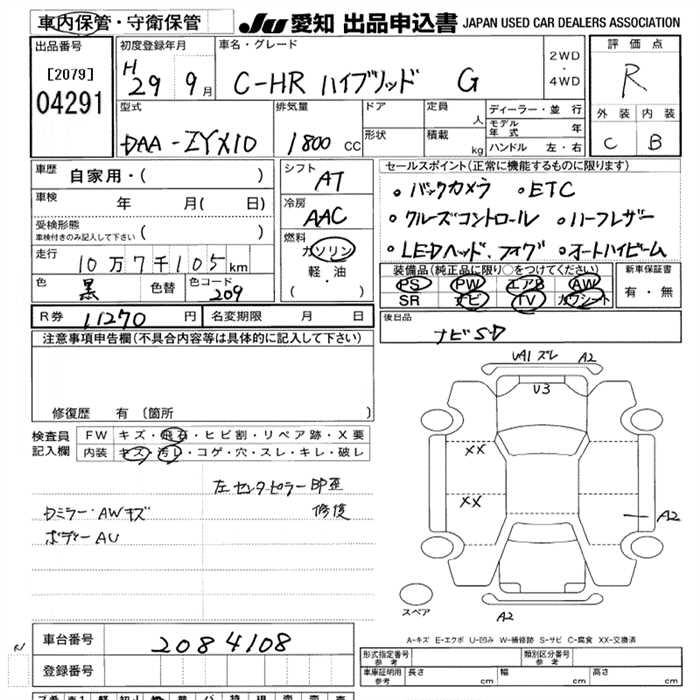 車内保管・守衛保管 JU 愛知 出品申込書 JAPAN USED CAR DEALERS ASSOCIATION
出品番号 初度登録年月 車名・グレード 2WD・4WD 評価点
[2079] H 29 9月 C-HR ハイブリッド G R
04291 型式 排気量 ドア 定員 人 ディーラー・並行 外装 内装
DAA-ZYX10 1800 CC 形状 積載 kg モデル年式 年 C B
ハンドル 左・右
車歴 自家用・( ) シフト AT セールスポイント(正常に機能するものに限ります)
車検 年 月( 日) 冷房 AAC ・バックカメラ ・ETC
受検形態 ( ) ・クルーズコントロール ・ハーフレザー
車検付きのみ記入して下さい 燃料 ガソリン ・LEDヘッド、フォグ ・オートハイビーム
走行 10万7千105km 軽・油 装備品(純正品に限り○をつけてください) 新車保証書
色 黒 色替 色コード 209 ( ・ ) PS PW エアB AW 有・無
SR ナビ TV カワシート
R券 11270 円 名変期限 月 日 後日品
注意事項申告欄(不具合内容等は具体的に記入して下さい) ナビSD
修復歴 有 〔箇所 〕
検査員 FW キズ・飛石・ヒビ割・リペア跡・X要
記入欄 内装 キズ・汚レ・コゲ・穴・スレ・キレ・破レ
左センタピラー 凹歪
ロミラー・AWキズ 修復
ボディーAU
UA1 ズレ A2
U3
XX
XX
A2
スペア A2
A-キズ E-エクボ U-凹み W-補修跡 S-サビ C-腐食 XX-交換済
車台番号 2084108 形式指定番号 参考 類別区分番号 参考
登録番号 車庫証明用 参考 長さ cm 幅 cm 高さ cm